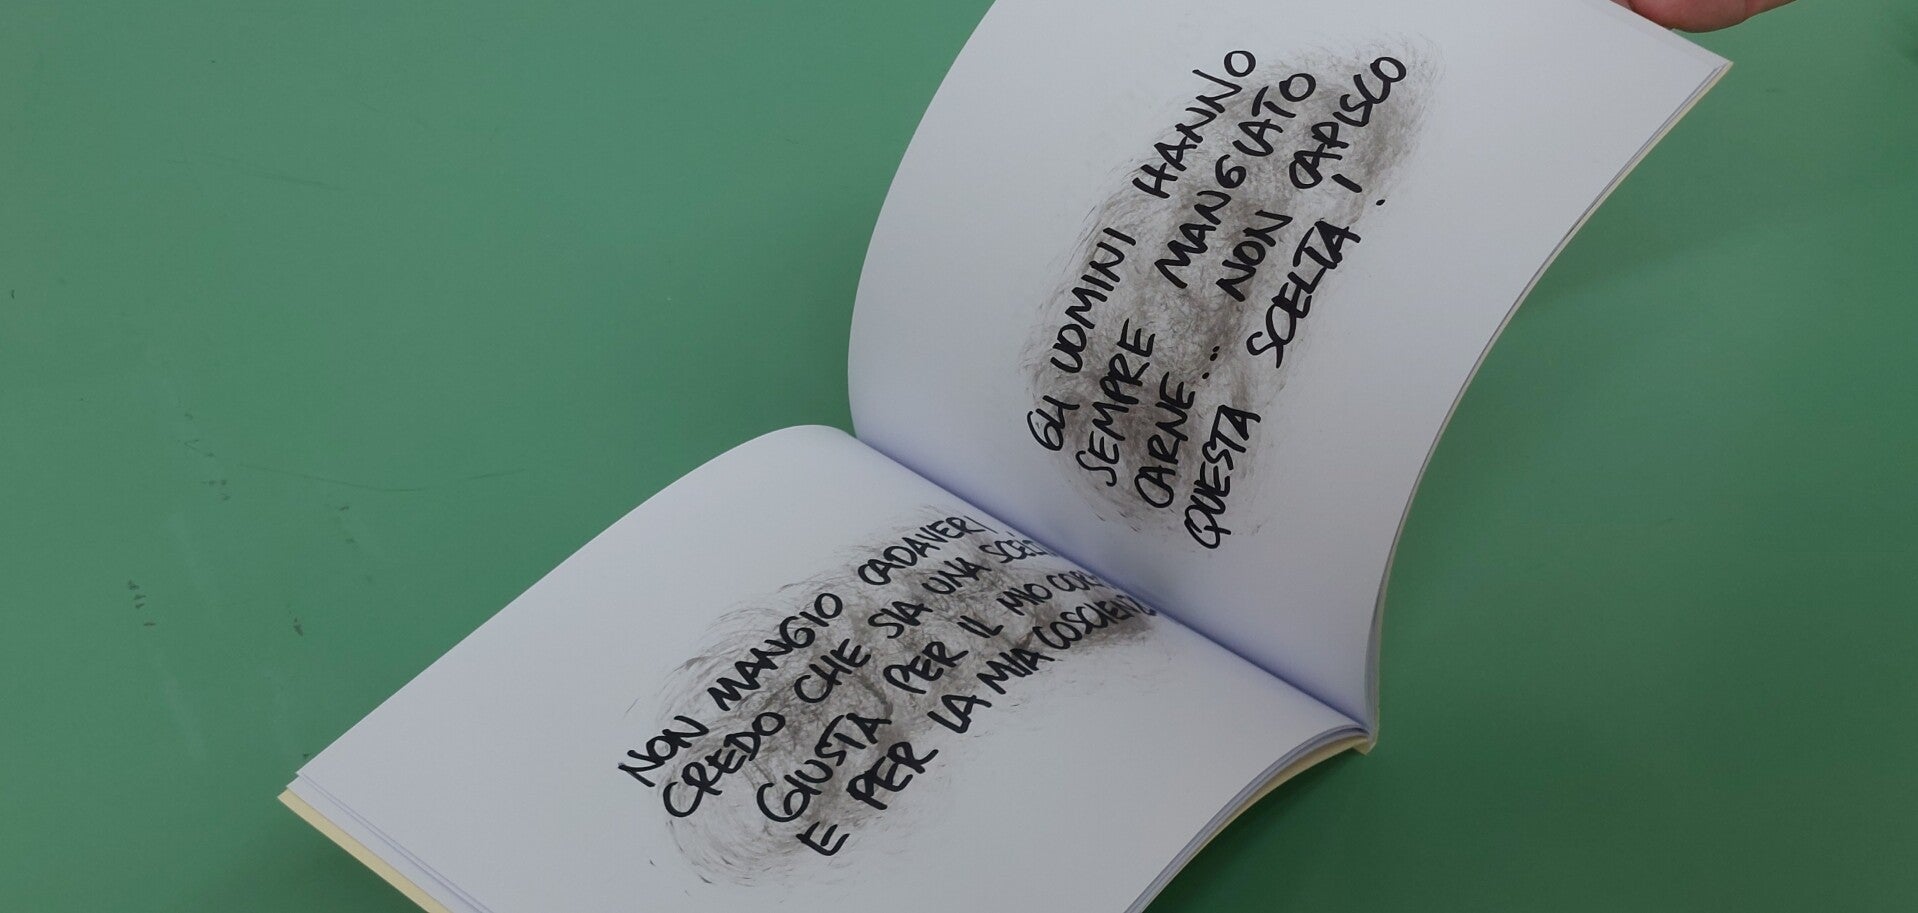 NON MANGIO CADAVERI
CREDO CHE SIA UNA SCELT
GIUSTA PER IL MIO CORP
E PER LA MIA COSCIENZ
GLI UOMINI HANNO
SEMPRE MANGIATO
CARNE... NON CAPISCO
QUESTA SCELTA!